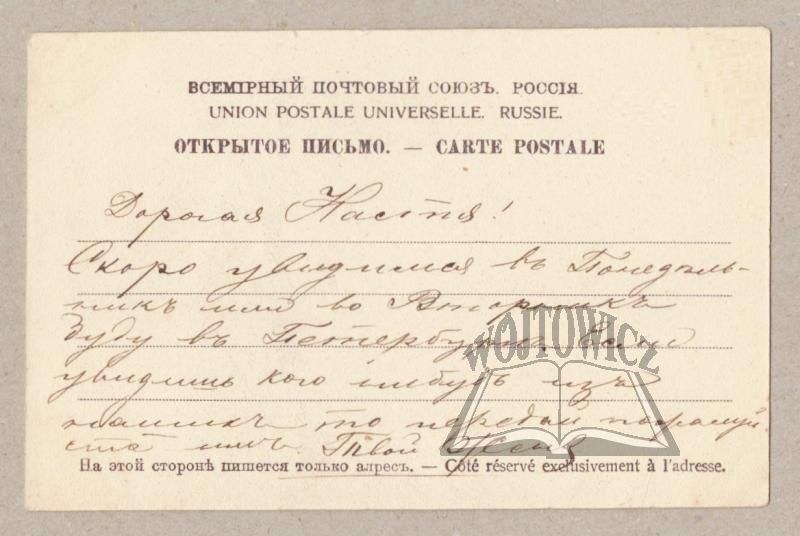 ВСЕМІРНЫЙ ПОЧТОВЫЙ СОЮЗЪ. РОССІЯ.
UNION POSTALE UNIVERSELLE. RUSSIE.
ОТКРЫТОЕ ПИСЬМО. — CARTE POSTALE
Дорогая Настя!
Скоро увидимся въ Понедѣль-
никъ или во Вторникъ
буду въ Петербургѣ. Если
увидишь кого нибудь изъ
нашихъ то передай
имъ. Твой Женя
На этой сторонѣ пишется только адресъ. — Côté réservé exclusivement à l'adresse.
WÓJTOWICZ